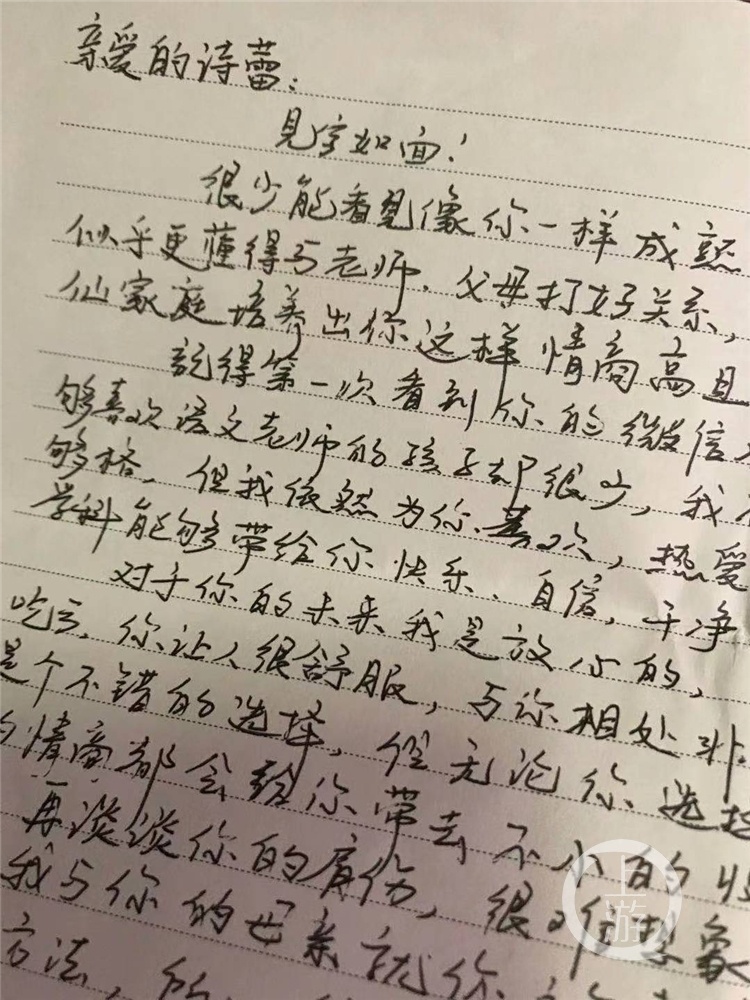 亲爱的诗蕾：
见字如面！
很少能看见像你一样成熟
似乎更懂得与老师、父母打好关系，
仙家庭培养出你这样情商高且
记得第一次看到你的微信
够喜欢语文老师的孩子却很少，我
够格，但我依然为你喜欢，热爱
学科能够带给你快乐、自信，干净
对于你的未来我是放心的，
吃亏，你让人很舒服，与你相处非
是个不错的选择，但无论你选择
的情商都会给你带去不小的收
再谈谈你的肩伤，很难想象
我与你的母亲就你
方法，所
上游